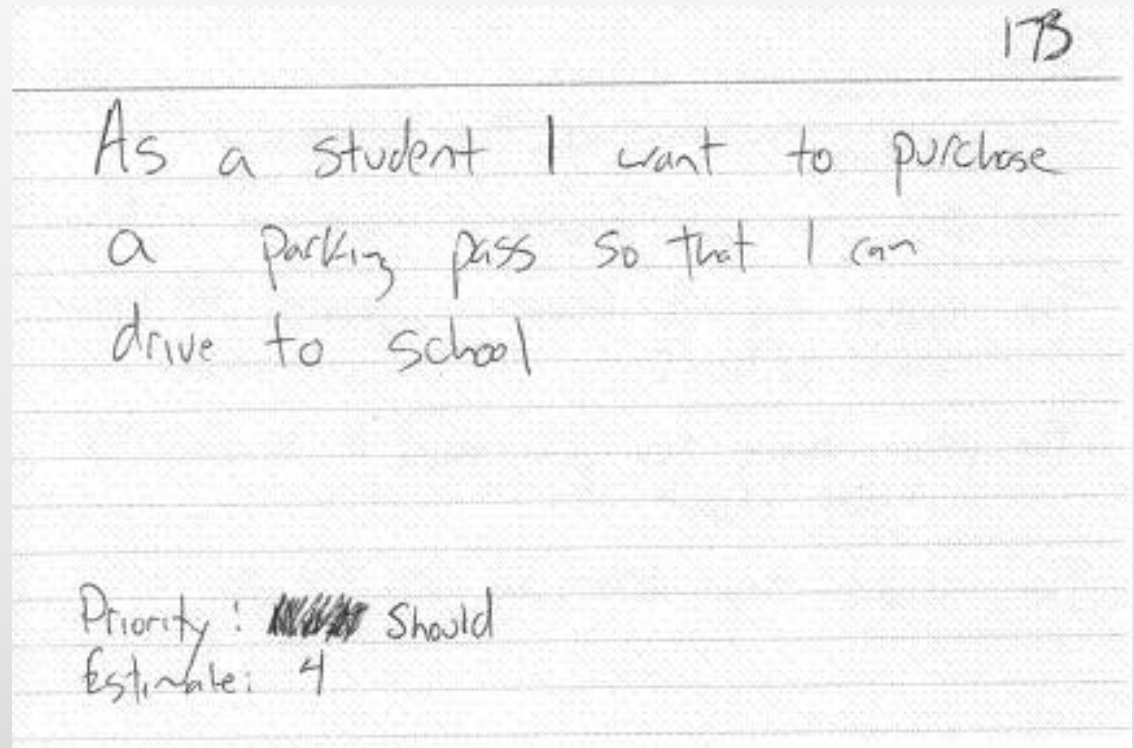 173
As a student I want to purchase
a parking pass so that I can
drive to school
Priority: Should
Estimate: 4